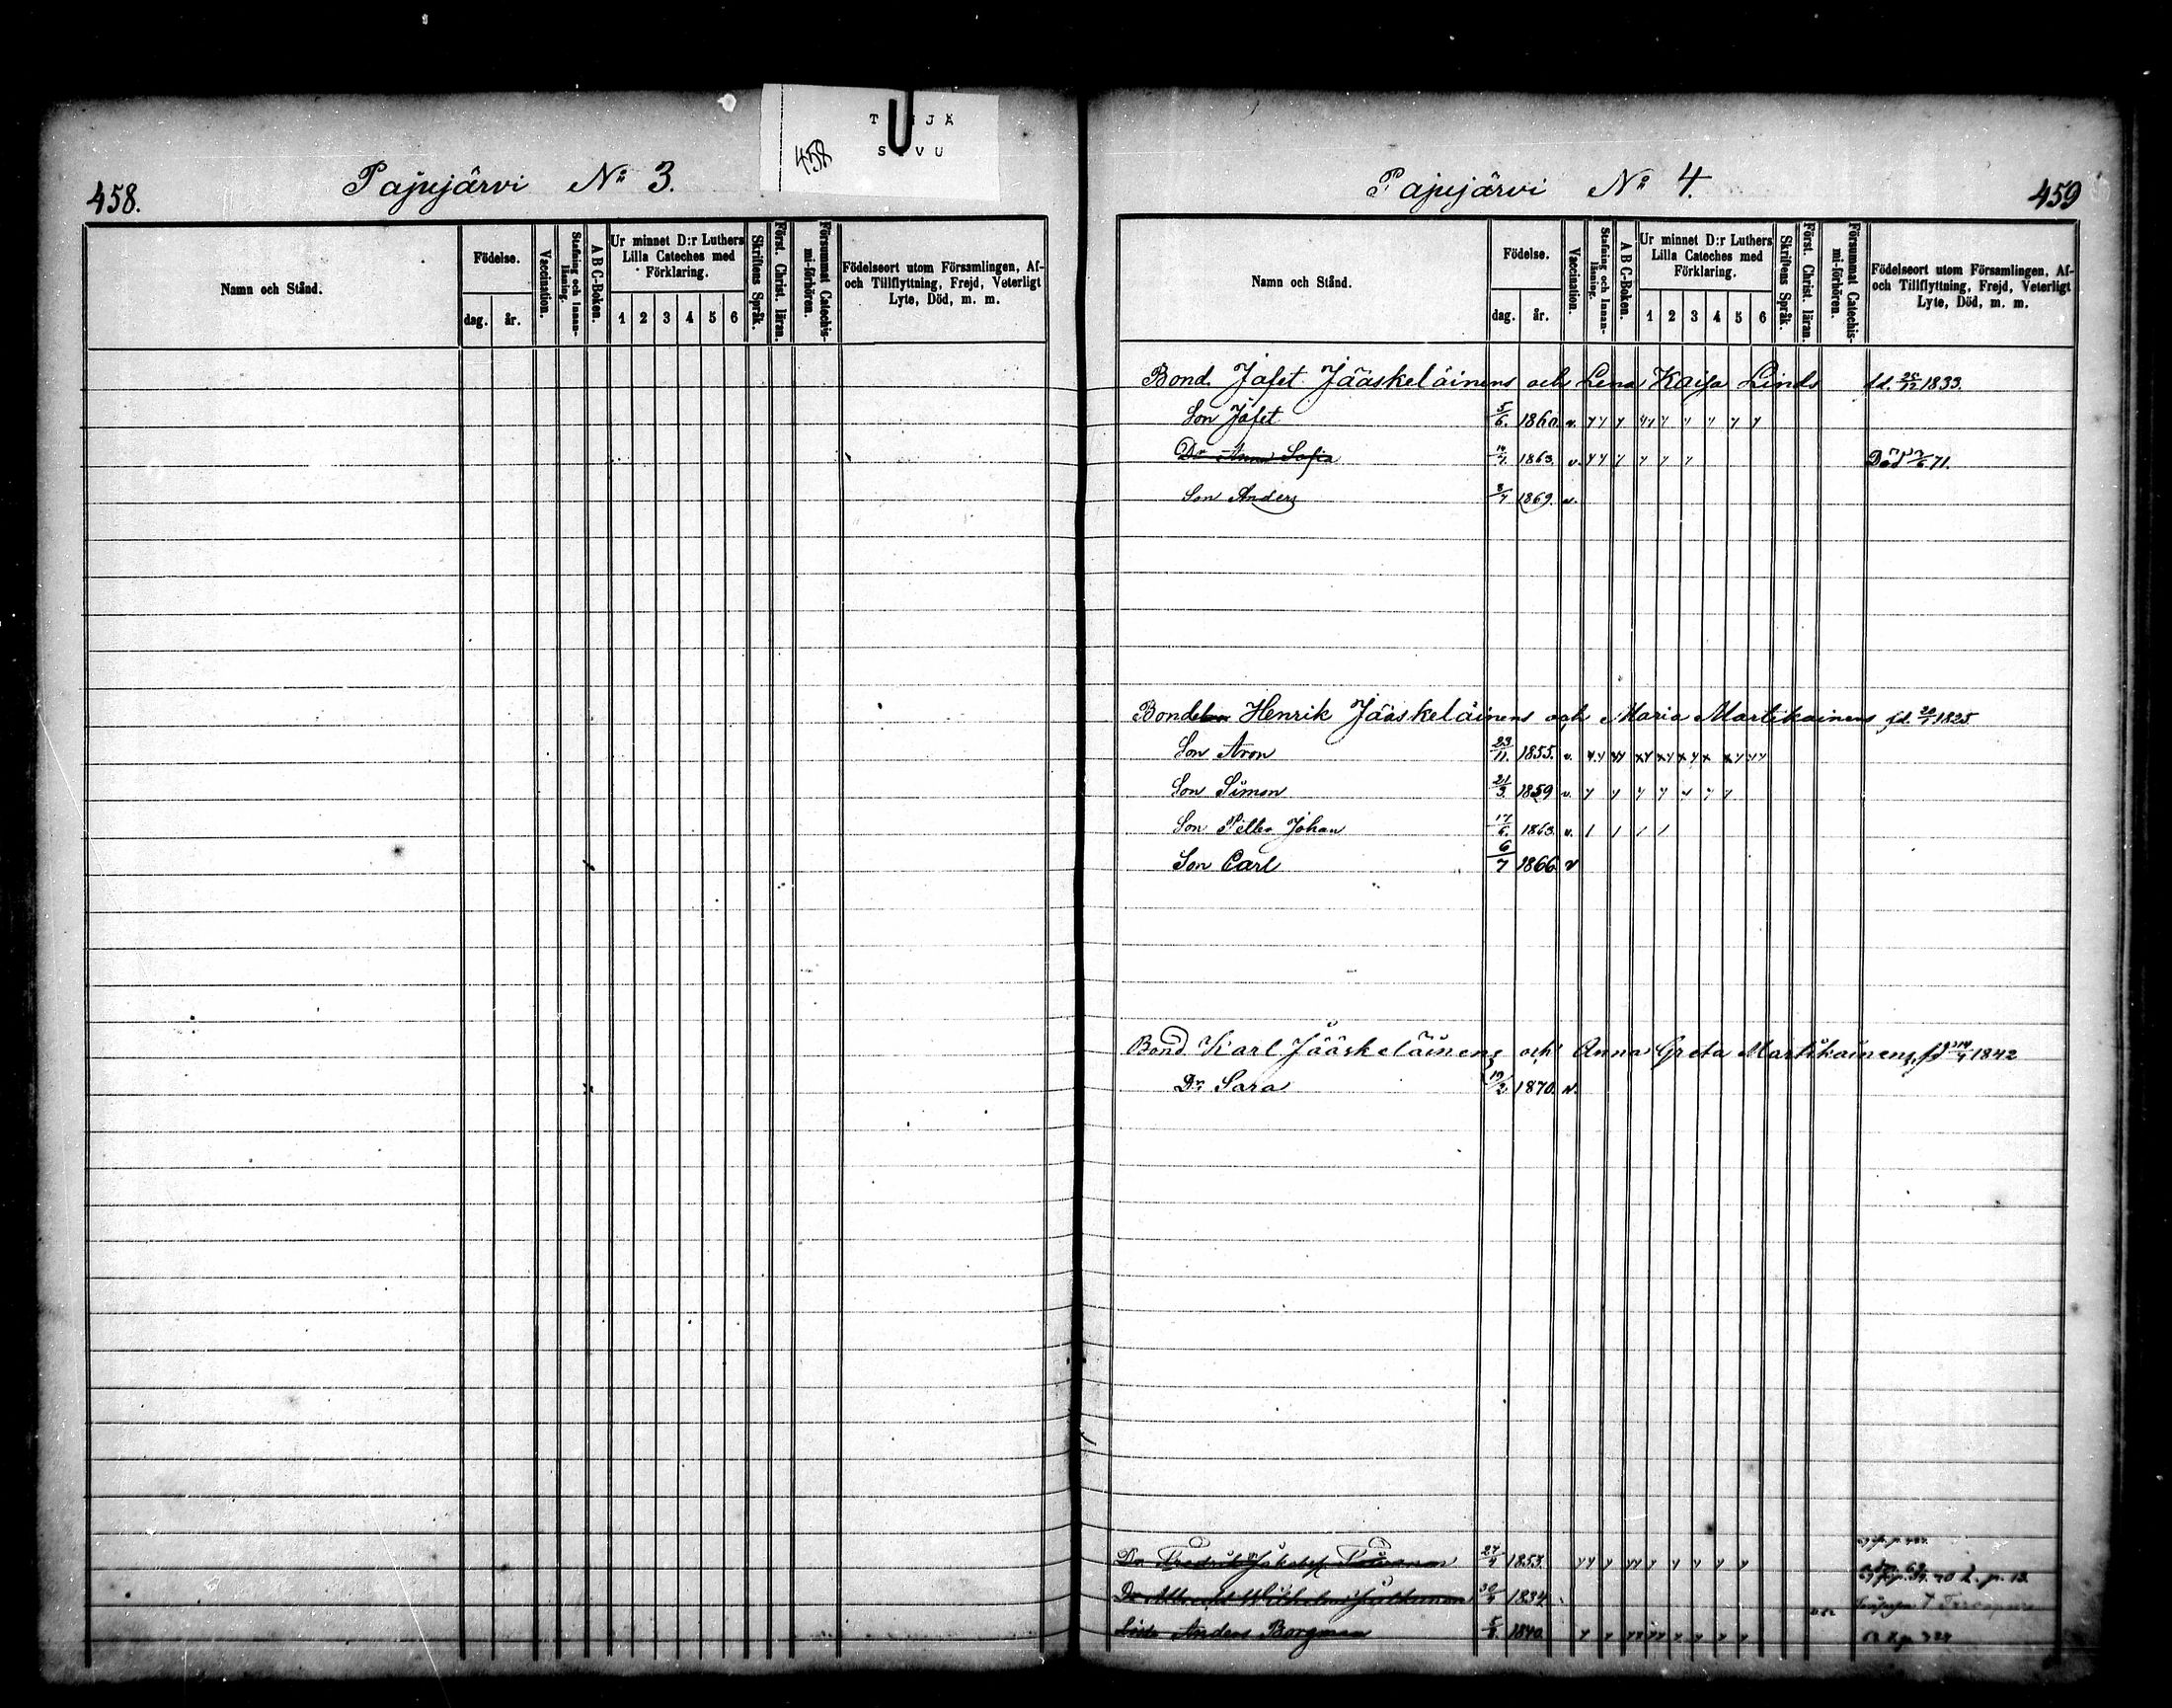 T JÄ
S VU
458
458.
Pajujärvi No 3.
Namn och Stånd.
Födelse.
dag.
år.
Vaccination.
Stafning och Innan-läsning.
A B C-Boken.
Ur minnet D:r Luthers
Lilla Cateches med
Förklaring.
1 2 3 4 5 6
Skriftens Språk.
Först. Christ. läran.
Försummat Catechis-mi-förhören.
Födelseort utom Församlingen, Af-
och Tillflyttning, Frejd, Veterligt
Lyte, Död, m. m.
Pajujärvi No 4.
459
Namn och Stånd.
Födelse.
dag.
år.
Vaccination.
Stafning och Innan-läsning.
A B C-Boken.
Ur minnet D:r Luthers
Lilla Cateches med
Förklaring.
1 2 3 4 5 6
Skriftens Språk.
Först. Christ. läran.
Försummat Catechis-mi-förhören.
Födelseort utom Församlingen, Af-
och Tillflyttning, Frejd, Veterligt
Lyte, Död, m. m.
Bond. Jafet Jääskeläinens och Lena Kaisa Linds fd. 1833.
Son Jafet 5/6. 1860. v.
Dr Anna Sofia 1863. v. Död 71.
Son Anders 1869. v.
Bonde Henrik Jääskeläinens och Maria Martikainens fd. 1825
Son Aron 23/11. 1855. v.
Son Simon 21/3. 1859 v.
Son Petter Johan 17/6. 1863. v.
Son Carl 6/7 1866 v
Bond Karl Jääskeläinens och Anna Greta Martikainens fd 1842
Dr Sara 1870. v.
Dr Fredrik 1853.
Dr Wilhelm 1834
Anders Borgman 1840